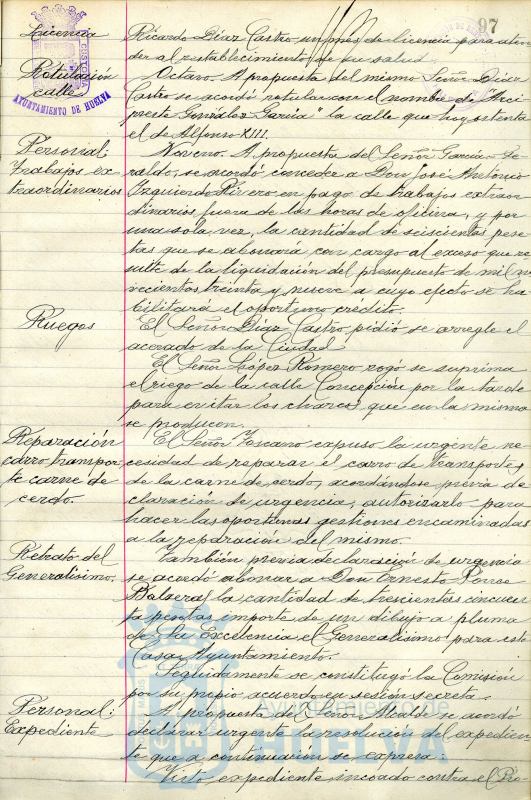 97
Licencia
Ricardo Díaz Castro, un mes de licencia para aten-
der al restablecimiento de su salud.
Rotulación
calle
Octavo. A propuesta del mismo Señor Díaz
Castro se acordó rotular con el nombre de "Arci
preste González García" la calle que hoy ostenta
el de Alfonso XIII.
AYUNTAMIENTO DE HUELVA
CUSTODIA
Personal:
Trabajos ex-
traordinarios
Noveno. A propuesta del Señor García Ge-
raldo, se acordó conceder a Don José Antonio
Izquierdo Rivero en pago de trabajos extraor
dinarios, fuera de las horas de oficina, y por
una sola vez, la cantidad de seiscientas pese
tas que se abonaría con cargo al exceso que re
sulte de la liquidación del presupuesto de mil no
vecientos treinta y nueve a cuyo efecto se ha
bilitará el oportuno crédito.
Ruegos
El Señor Díaz Castro, pidió se arregle el
acerado de la Ciudad.
El Señor López Romero rogó se suprima
el riego de la calle Concepción por la tarde
para evitar los charcos que en la misma
se producen.
Reparación
carro transpor
te carne de
cerdo.
El Señor Toscano expuso la urgente ne
cesidad de reparar el carro de transportes
de la carne de cerdo, acordándose previa de
claración de urgencia, autorizarlo para
hacer las oportunas gestiones encaminadas
a la reparación del mismo.
Retrato del
Generalísimo.
También previa declaración de urgencia
se acordó abonar a Don Ernesto Ponce
la cantidad de trescientas cincuen
ta pesetas importe de un dibujo a pluma
de Su Excelencia el Generalísimo para este
Casa Ayuntamiento.
Seguidamente se constituyó la Comisión
por su propio acuerdo en sesión secreta.
Personal:
Expediente
A propuesta del Señor Alcalde se acordó
declarar urgente la resolución del expedien
te que a continuación se expresa:
Visto expediente incoado contra el Pro-
Ayuntamiento de
HUELVA